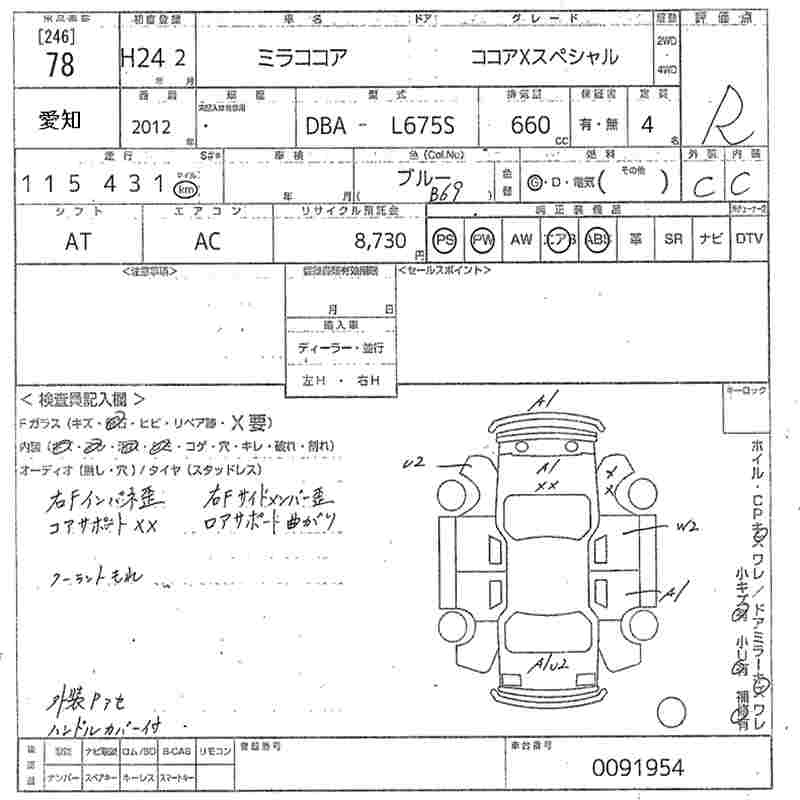 初度登録 車名 ドア グレード 駆動 評価点
[246]
78 H24 2 ミラココア ココアXスペシャル 2WD ・ 4WD R
年 月
車歴 型式 排気量 保証書 定員
愛知 2012 年 ・ DBA - L675S 660 cc 有・無 4 名
走行 車検 色(Col.No) 色替 燃料 外装 内装
115 431 マイル km 年 月 ブルー ( B69 ) G・D・電気( その他 ) C C
シフト エアコン リサイクル預託金 純正装備品
AT AC 8,730 円 PS PW AW エアB ABS 革 SR ナビ DTV
<注意事項> 登録書類有効期限 <セールスポイント>
月 日
輸入車
ディーラー・並行
左H ・ 右H
<検査員記入欄> キーロック
Fガラス(キズ・・ヒビ・リペア跡・X要)
内装(・コゲ・穴・キレ・破れ・割れ)
オーディオ(無し・穴)/タイヤ(スタッドレス)
右Fインパネ歪 右Fサイドメンバー歪
コアサポートXX ロアサポート曲がり
クーラントもれ
外装Pアセ
ハンドルカバー付
A1
A1
XX
U2
X
X
W2
A1
A1U2
ホイル・CPキズワレ/ドアミラーキズワレ
小キズ有 小U有 補修有
後日品 取説 ナビ取説 ロム/SD B-CAS リモコン 登録番号 車台番号
ナンバー スペアキー キーレス スマートキー 0091954